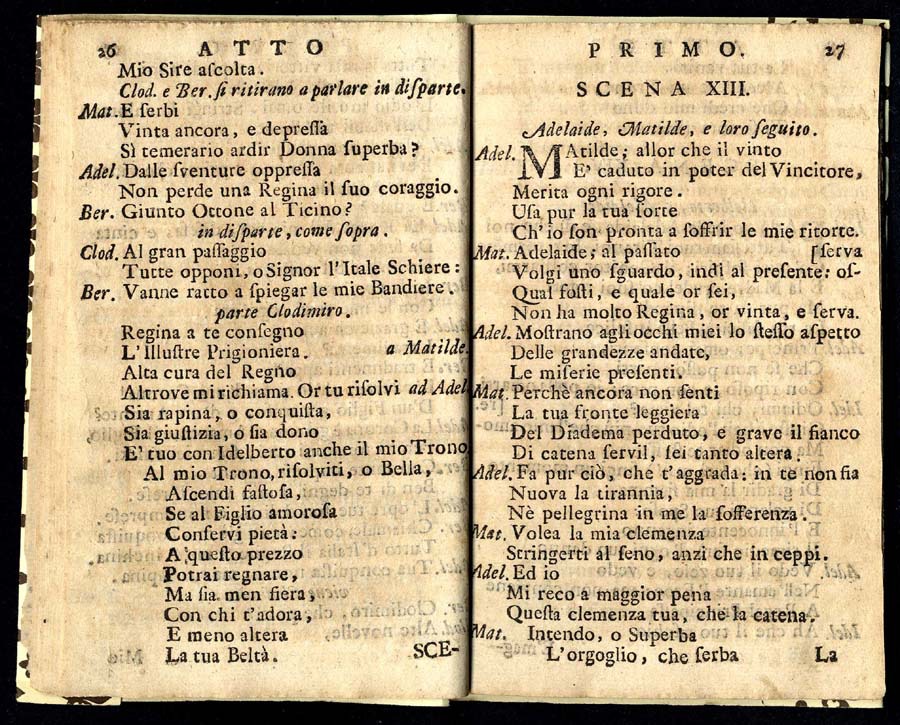 26 ATTO
Mio Sire aſcolta.
Clod. e Ber. ſi ritirano a parlare in diſparte.
Mat. E ſerbi
Vinta ancora, e depreſſa
Sì temerario ardir Donna ſuperba?
Adel. Dalle ſventure oppreſſa
Non perde una Regina il ſuo coraggio.
Ber. Giunto Ottone al Ticino?
in diſparte, come ſopra.
Clod. Al gran paſſaggio
Tutte opponi, o Signor l'Itale Schiere:
Ber. Vanne ratto a ſpiegar le mie Bandiere.
parte Clodimiro.
Regina a te conſegno
L'Illuſtre Prigioniera. a Matilde.
Alta cura del Regno
Altrove mi richiama. Or tu riſolvi ad Adel
Sia rapina, o conquiſta,
Sia giuſtizia, o ſia dono
E' tuo con Idelberto anche il mio Trono
Al mio Trono, riſolviti, o Bella,
Aſcendi faſtoſa,
Se al Figlio amoroſa
Conſervi pietà:
A queſto prezzo
Potrai regnare,
Ma ſia men fiera,
Con chi t'adora,
E meno altera
La tua Beltà. SCE-
PRIMO. 27
SCENA XIII.
Adelaide, Matilde, e loro ſeguito.
Adel. MAtilde; allor che il vinto
E' caduto in poter del Vincitore,
Merita ogni rigore.
Uſa pur la tua ſorte
Ch'io ſon pronta a ſoffrir le mie ritorte.
Mat. Adelaide; al paſſato [ſerva
Volgi uno ſguardo, indi al preſente: oſ-
Qual foſti, e quale or ſei,
Non ha molto Regina, or vinta, e ſerva.
Adel. Moſtrano agli occhi miei lo ſteſſo aſpetto
Delle grandezze andate,
Le miſerie preſenti.
Mat. Perchè ancora non ſenti
La tua fronte leggiera
Del Diadema perduto, e grave il fianco
Di catena ſervil, ſei tanto altera.
Adel. Fa pur ciò, che t'aggrada: in te non ſia
Nuova la tirannia,
Nè pellegrina in me la ſofferenza.
Mat. Volea la mia clemenza
Stringerti al ſeno, anzi che in ceppi.
Adel. Ed io
Mi reco a maggior pena
Queſta clemenza tua, che la catena.
Mat. Intendo, o Superba
L'orgoglio, che ſerba La